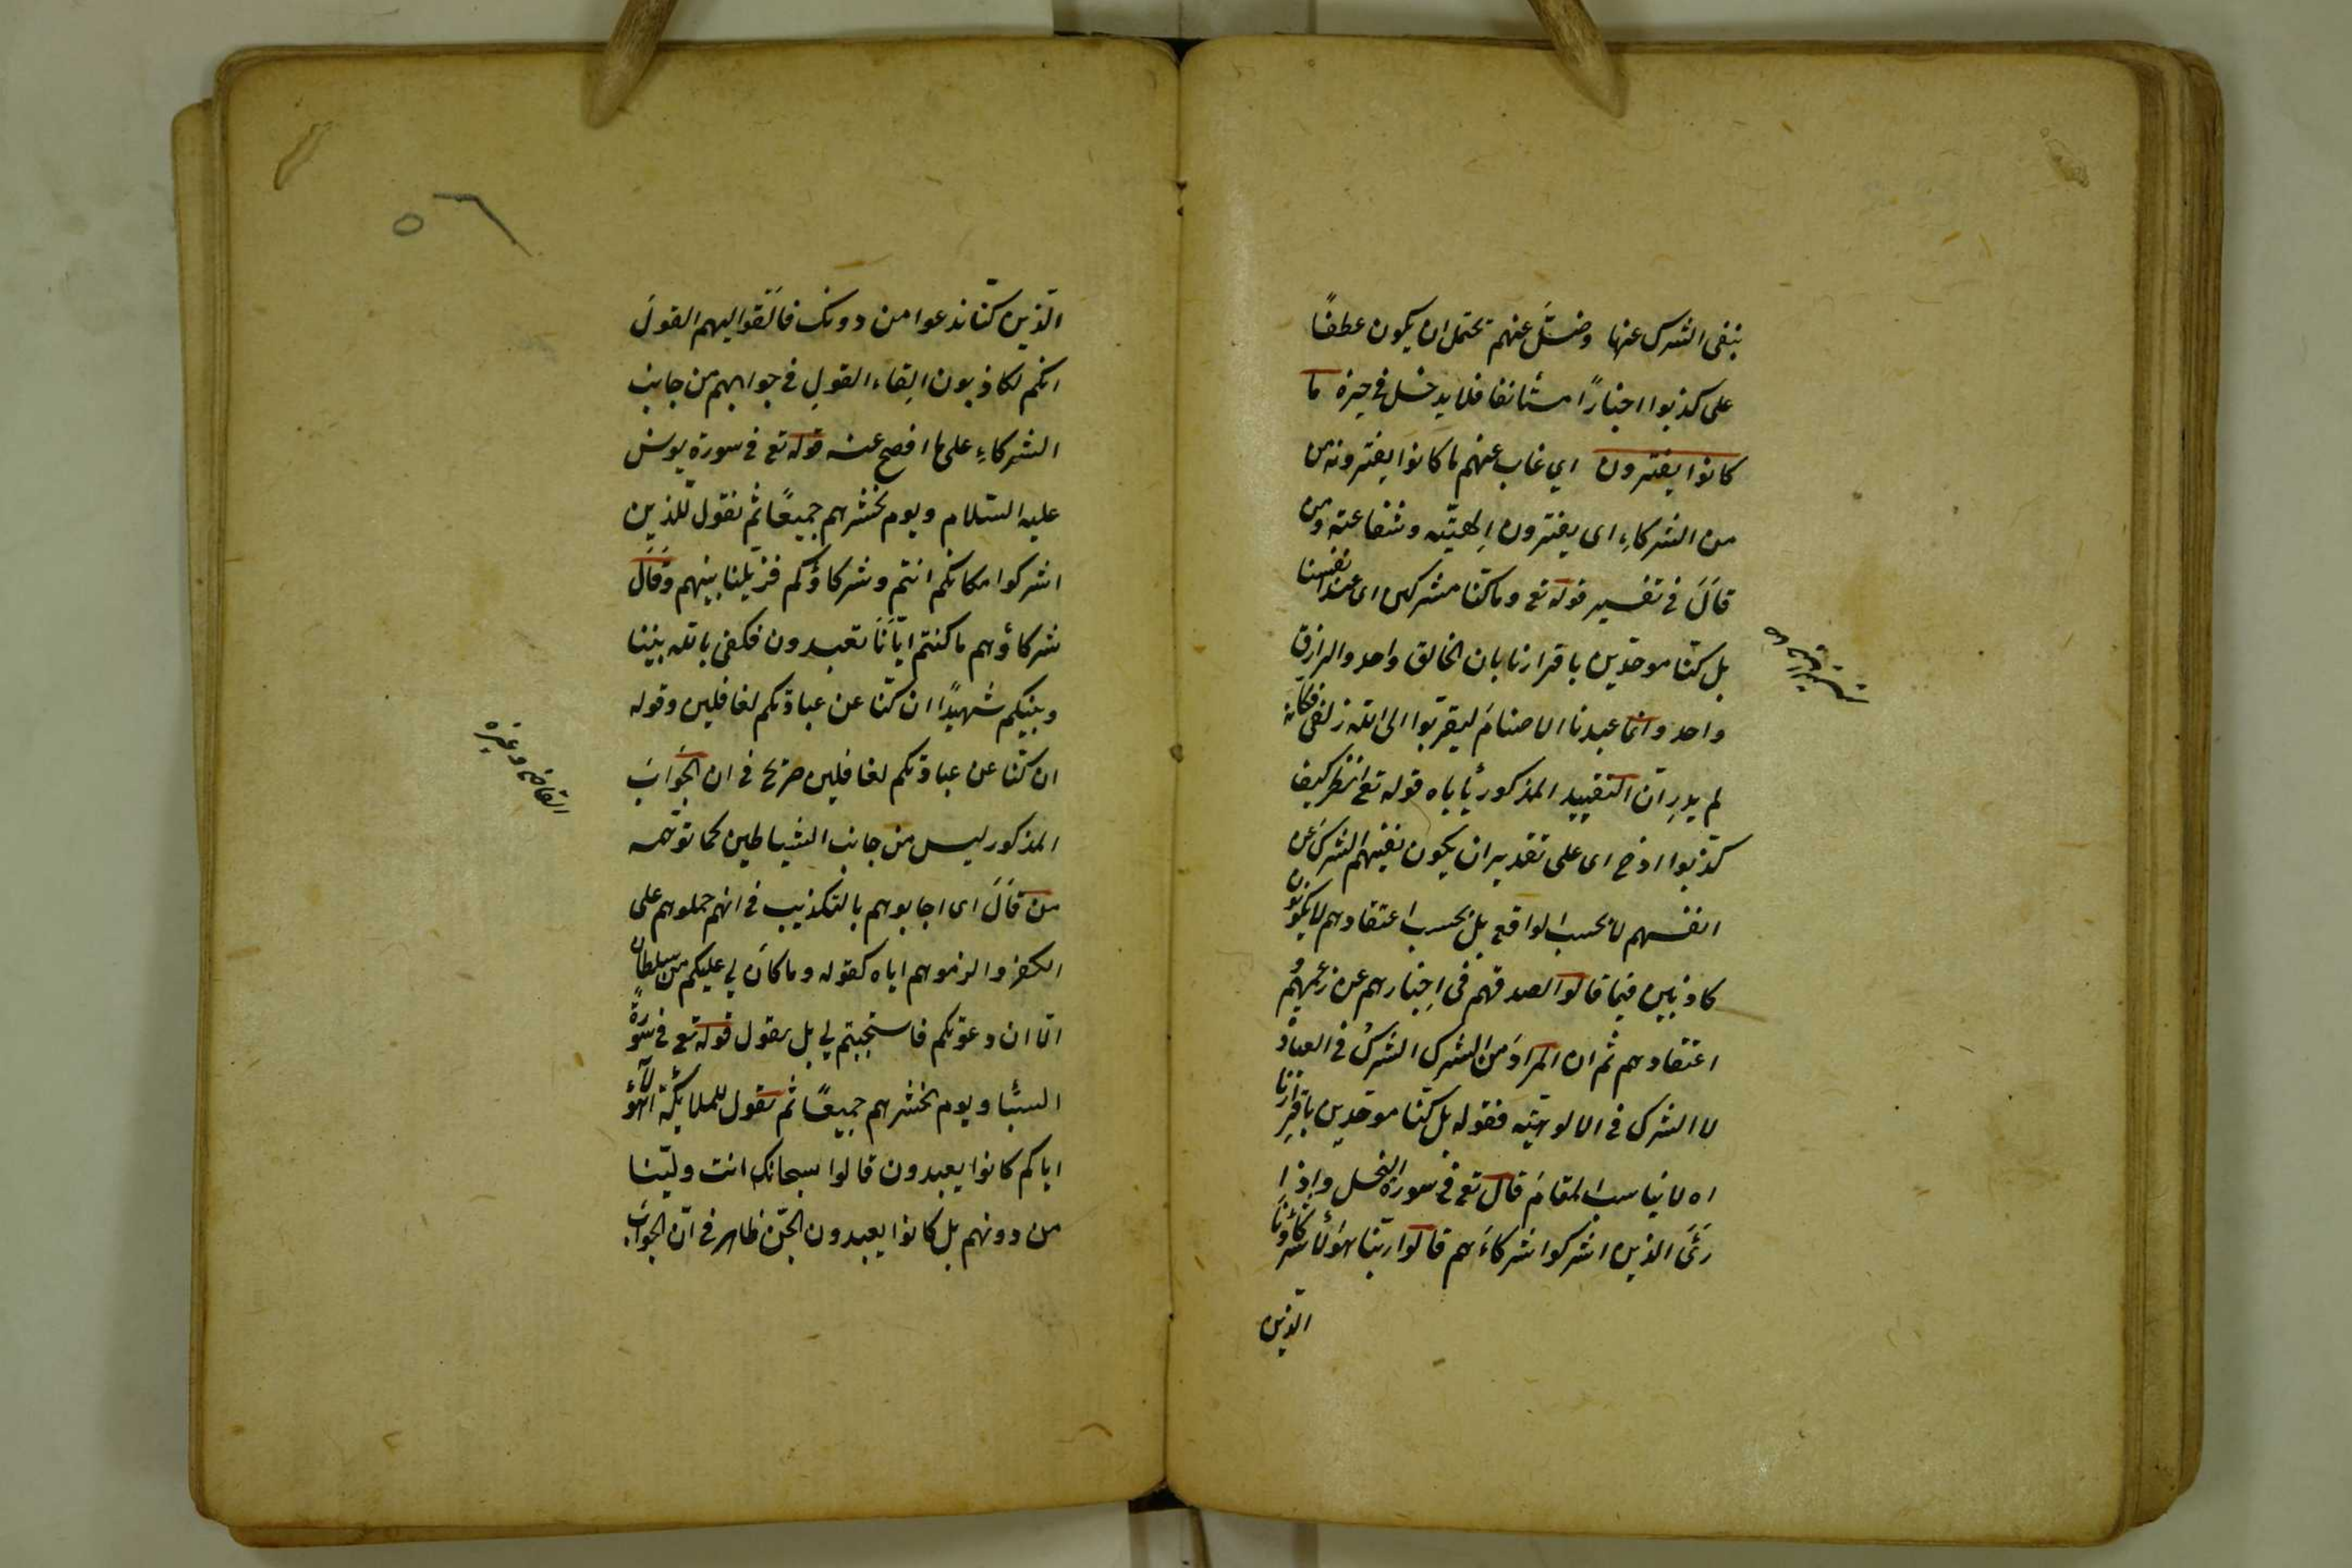 بنفى الشرك عنها وضلّ عنهم تحتمل ان يكون عطفًا
على كذبوا اخبارًا مستأنفا فلا يدخل فى حيزه ما
كانوا يفترون اي غاب عنهم ما كانوا يفترونه من
من الشركاءِ اى يفترون اِلهيّته وشفاعته ومن
قالَ فى تفسير قوله تع وما كنّا مشركين اى عند انفسنا
بل كنّا موحّدين باقرارنا بان الخالق واحد والرازق
واحد وانّما عبدنا الاصنامَ ليقرّبوا الى الله زلفى فكانه
لم يدرِ انّ التقييد المذكور يأباه قوله تع انظر كيف
كذّبوا اذ ح اى على تقدير ان يكون نفيهم الشرك عن
انفسهم لا بحسب الواقع بل بحسب اعتقادهم لا يكونون
كاذبين فيما قالوا لصدقهم فى اِخبارهم عن زعمهم و
اعتقادهم ثم ان المرادَ من الشرك الشركُ فى العبادة
لا الشرك فى الالوهيّته فقوله بل كنّا موحّدين باقرارنا
اه لا يناسب المقامَ قال تع فى سورة النحل واِذا
رَئَى الذين اشركوا شركاءَهم قالوا ربّنا هؤلاَ شركاؤنا
الّذين
الّذين كنّا ندعوا من دونك فاَلْقَوا اليهم القولَ
انكم لكاذبون اِلقاء القولِ فى جوابهم من جانب
الشركاءِ على ما افصح عنه قوله تع فى سورة يونس
عليه السّلام ويوم نحشرهم جميعًا ثم نقول للّذين
اشركوا مكانكم انتم وشركاؤكم فزيّلنا بينهم وَقَالَ
شركاؤهم ما كنتم ايّانَا تعبدون فكفى بالله بيننا
وبينكم شهيدًا ان كنّا عن عبادتكم لغافلين وقوله
ان كنّا عن عبادتكم لغافلين صريح فى ان الجوَابَ
المذكور ليس من جانب الشياطين كما توهّمه
من قالَ اى اجابوهم بالتكذيب فى انهم حملوهم على
الكفر والزموهم اياه كقوله وما كانَ لي عليكم من سلطان
الّا ان دعوتكم فاستجبتم لي بل نقول قوله تع فى سورة
السبأ ويوم نحشرهم جميعًا ثم نقول للملائكة اهؤلآء
اياكم كانوا يعبدون قالوا سبحانك انت وليّنا
من دونهم بل كانوا يعبدون الجنّ ظاهر فى انّ الجوابَ
القاضى وغيره